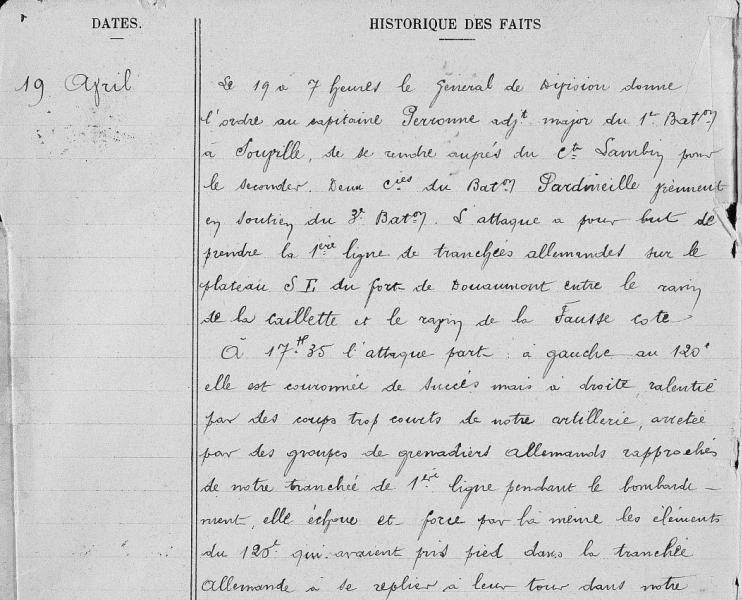 DATES.
HISTORIQUE DES FAITS
19 Avril
Le 19 à 7 heures le Général de Division donne
l'ordre au capitaine Perronne adjt major du 1er Baton
à Souville, de se rendre auprès du Ct Lambin pour
le seconder. Deux Cies du Baton Pardineille viennent
en soutien du 3e Baton. L'attaque a pour but de
prendre la 1ère ligne de tranchées allemandes sur le
plateau S E du fort de Douaumont entre le ravin
de la Caillette et le ravin de la Fausse cote
À 17H35 l'attaque part : à gauche au 120e
elle est couronnée de succès mais à droite, ralentie
par des coups trop courts de notre artillerie, arretée
par des groupes de grenadiers allemands rapprochés
de notre tranchée de 1ère ligne pendant le bombarde-
ment, elle échoue et force par là même les éléments
du 120e qui avaient pris pied dans la tranchée
Allemande à se replier à leur tour dans notre